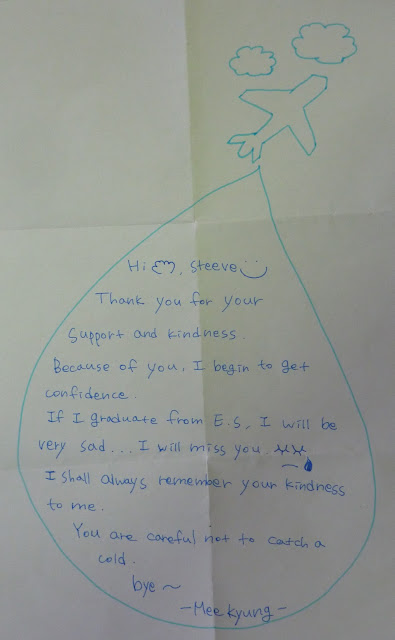 Hi, Steeve
Thank you for your
Support and kindness.
Because of you, I begin to get
confidence.
If I graduate from E.S, I will be
very sad... I will miss you.
I shall always remember your kindness
to me.
You are careful not to catch a
cold.
bye ~
- Mee kyung -